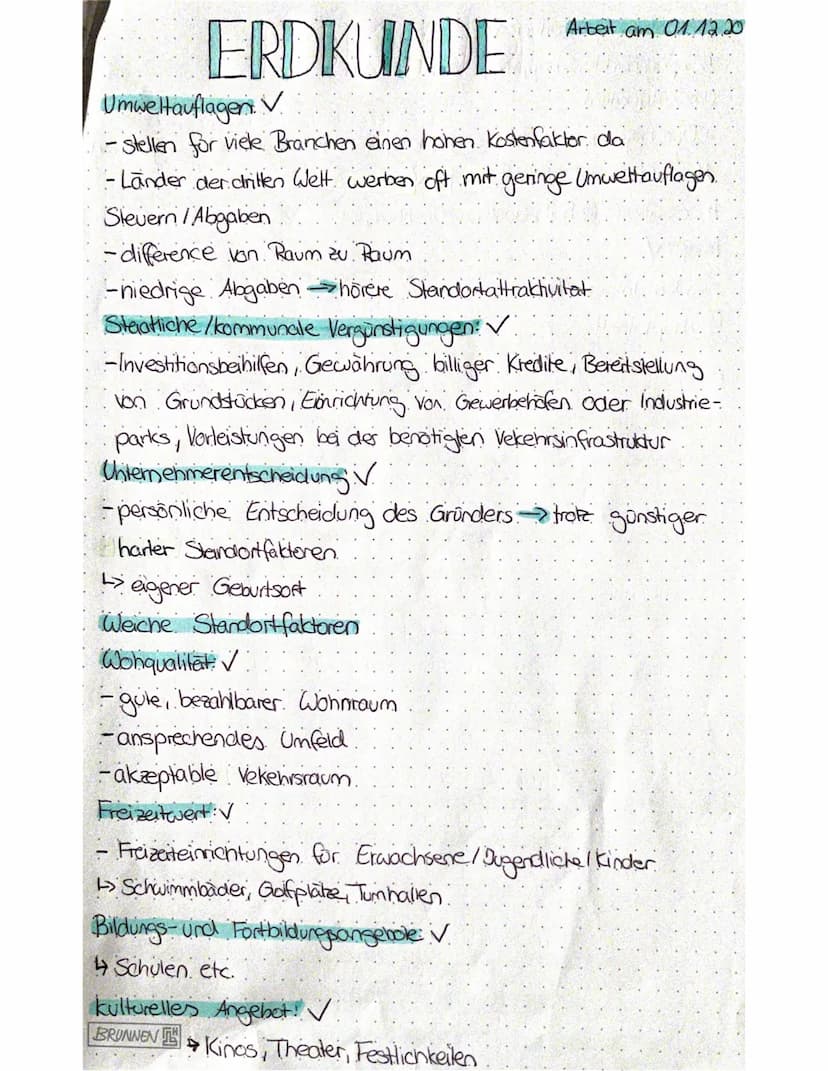 ERDKUNDE
Arbeit am 01.12.20
Umweltauflagen: ✓
- stellen för viele Branchen einen hohen Kostenfaktor da
- Länder der dritten Welt werben oft mit geringe Umweltauflagen
Steuern / Abgaben
- difference von Raum zu Raum
- niedrige Abgaben → hörere Standortattraktivität
Staatliche / kommunale Vergünstigungen: ✓
- Investitionsbeihilfen, Gewährung billiger Kredite, Bereitstellung
von Grundstücken, Einrichtung von Gewerbehöfen oder Industrie-
parks, Vorleistungen bei der benötigten Vekehrsinfrastruktur
Unternehmerentscheidung: ✓
- persönliche Entscheidung des Gründers → trotz günstiger
harter Standortfaktoren
↳ eigener Geburtsort
Weiche Standortfaktoren
Wohqualität: ✓
- gute, bezahlbarer Wohnraum
- ansprechendes Umfeld
- akzeptable Vekehrsraum
Freizeitwert: ✓
- Freizeiteinrichtungen för Erwachsene / Jugendliche / Kinder
↳ Schwimmbäder, Golfplätze, Turnhallen
Bildungs- und Fortbildungsangebote: ✓
↳ Schulen etc.
kulturelles Angebot: ✓
BRUNNEN
↳ Kinos, Theater, Festlichkeiten